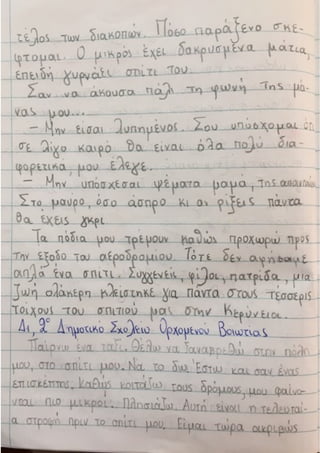 τέλος των διακοπών. Πόσο παράξενο σκέ-
φτομαι. Ο μικρός έχει δακρυσμένα μάτια,
επειδή γυρνάει σπίτι του.
Σαν να άκουσα πάλι τη φωνή της μά-
νας μου...
– Μην είσαι λυπημένος. Σου υπόσχομαι ότι
σε λίγο καιρό θα είναι όλα πολύ δια-
φορετικά, μου έλεγε.
– Μην υπόσχεσαι ψέματα μαμά, της απαντού
Στο μαύρο, όσο άσπρο κι αν ρίξεις πάντα
θα έχεις γκρι
Τα πόδια μου τρέμουν καθώς προχωρώ προς
την έξοδο του αεροδρομίου. Τότε δεν αφήσαμε
απλά ένα σπίτι. Συγγενείς, φίλοι, πατρίδα, μια
ζωή ολάκερη κλείστηκε για πάντα στους τέσσερις
τοίχους του σπιτιού μας στην Κερύνεια.
Δ1, 2ο Δημοτικό Σχολείο Ορχομενού Βοιωτίας
Παίρνω ένα ταξί. Θέλω να ξαναβρεθώ στην πόλη
μου, στο σπίτι μου. Να το δω. Έστω και σαν ένας
επισκέπτης. Καθώς κοιτάζω τους δρόμους, μου φαίνο-
νται πιο μικροί. Πλησιάζω. Αυτή είναι η τελευταί-
α στροφή πριν το σπίτι μου. Είμαι τώρα ακριβώς